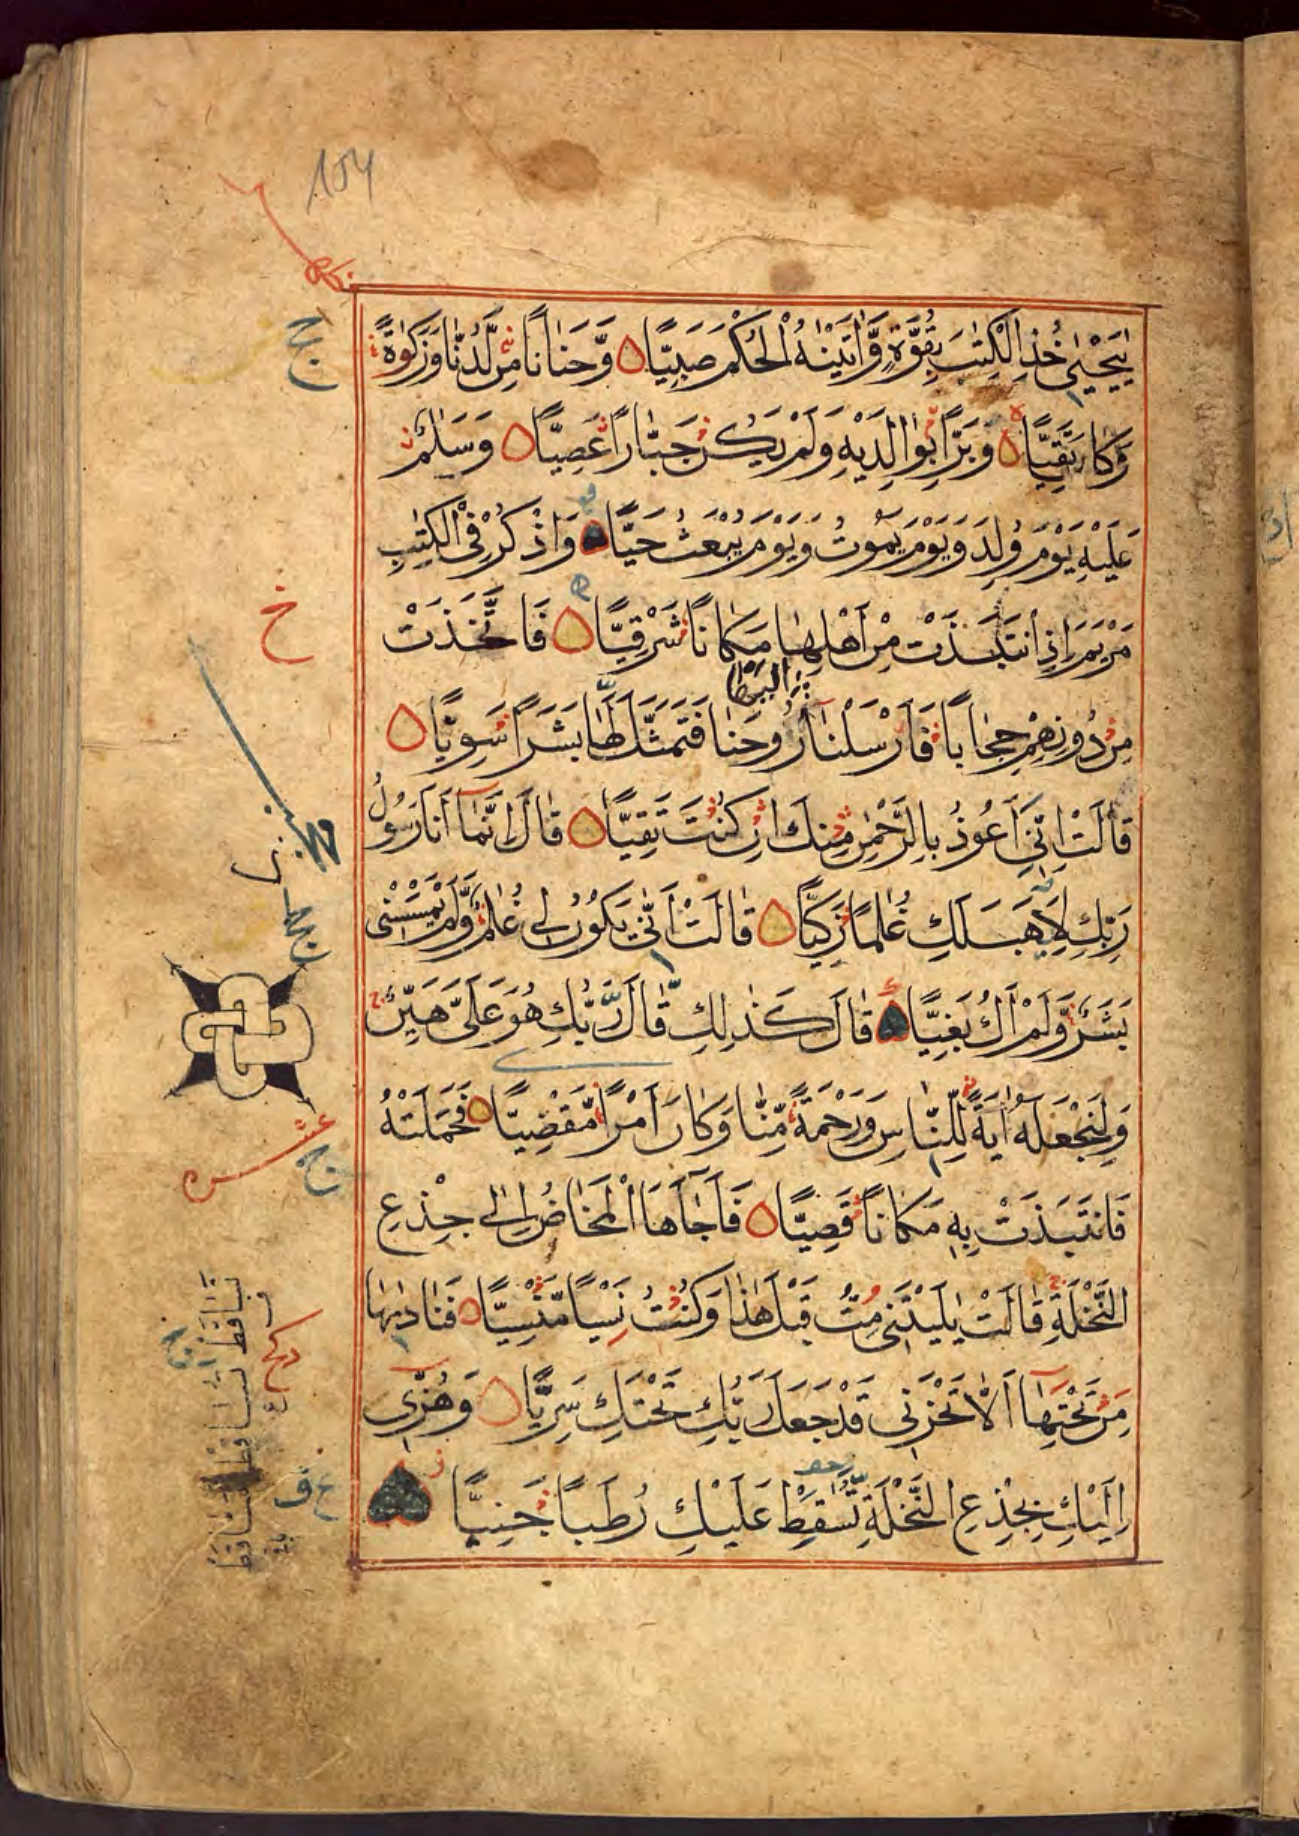 يٰيَحْيٰى خُذِ الْكِتٰبَ بِقُوَّةٍ وَّاٰتَيْنٰهُ الْحُكْمَ صَبِيًّا وَّحَنَانًا مِّن لَّدُنَّا وَزَكٰوةً
وَّكَانَ تَقِيًّا وَبَرًّا بِوَالِدَيْهِ وَلَمْ يَكُن جَبَّارًا عَصِيًّا وَسَلٰمٌ
عَلَيْهِ يَوْمَ وُلِدَ وَيَوْمَ يَمُوتُ وَيَوْمَ يُبْعَثُ حَيًّا وَاذْكُرْ فِي الْكِتٰبِ
مَرْيَمَ اِذِ انْتَبَذَتْ مِنْ اَهْلِهَا مَكَانًا شَرْقِيًّا فَاتَّخَذَتْ
مِن دُونِهِمْ حِجَابًا فَاَرْسَلْنَا رُوحَنَا فَتَمَثَّلَ لَهَا بَشَرًا سَوِيًّا
قَالَتْ اِنِّي اَعُوذُ بِالرَّحْمٰنِ مِنكَ اِن كُنْتَ تَقِيًّا قَالَ اِنَّمَا اَنَا رَسُولُ
رَبِّكِ لِاَهَبَ لَكِ غُلٰمًا زَكِيًّا قَالَتْ اَنّٰى يَكُونُ لِي غُلٰمٌ وَّلَمْ يَمْسَسْنِي
بَشَرٌ وَّلَمْ اَكُ بَغِيًّا قَالَ كَذٰلِكِ قَالَ رَبُّكِ هُوَ عَلَيَّ هَيِّنٌ
وَلِنَجْعَلَهُ اٰيَةً لِّلنَّاسِ وَرَحْمَةً مِّنَّا وَكَانَ اَمْرًا مَّقْضِيًّا فَحَمَلَتْهُ
فَانتَبَذَتْ بِهِ مَكَانًا قَصِيًّا فَاَجَآءَهَا الْمَخَاضُ اِلٰى جِذْعِ
النَّخْلَةِ قَالَتْ يٰلَيْتَنِي مِتُّ قَبْلَ هٰذَا وَكُنْتُ نَسْيًا مَّنْسِيًّا فَنَادٰىهَا
مِن تَحْتِهَا اَلَّا تَحْزَنِي قَدْ جَعَلَ رَبُّكِ تَحْتَكِ سَرِيًّا وَهُزِّي
اِلَيْكِ بِجِذْعِ النَّخْلَةِ تُسٰقِطْ عَلَيْكِ رُطَبًا جَنِيًّا
خ
عشره